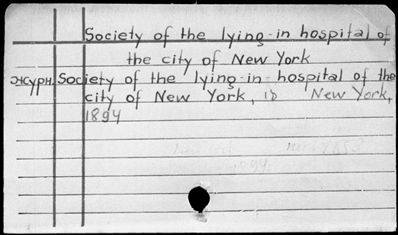 Society of the lying-in hospital of
the city of New York
Журн. Society of the lying-in hospital of the
city of New York, 18 New York,
1894